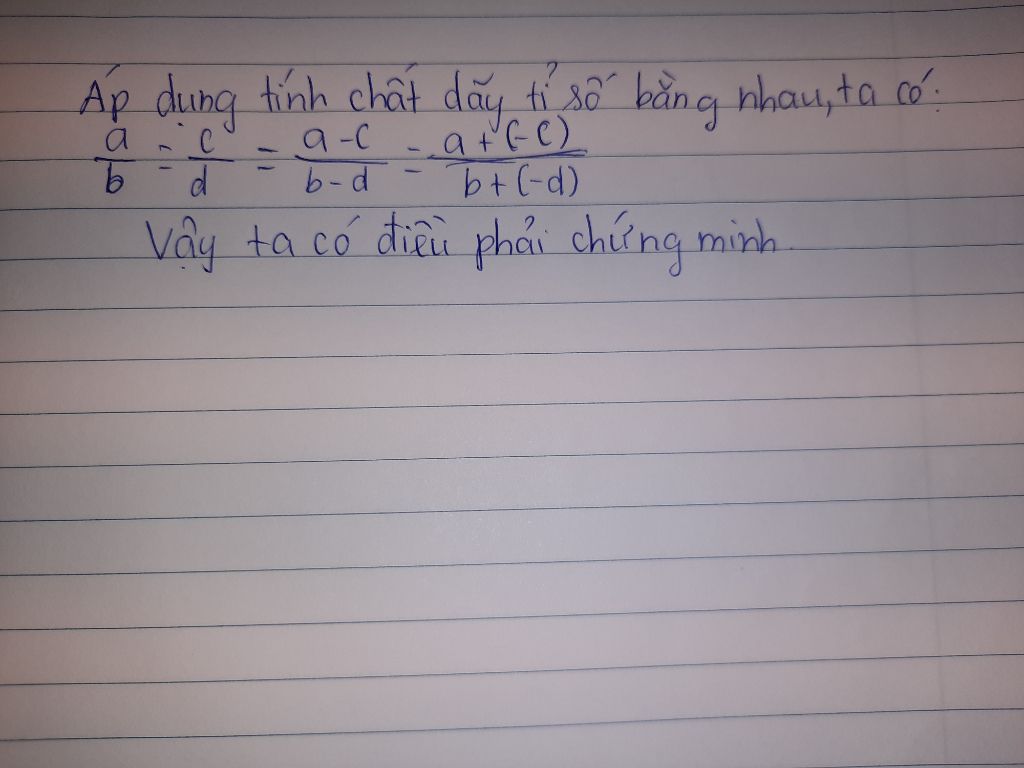 Áp dụng tính chất dãy tỉ số bằng nhau, ta có:
a/b = c/d = a-c/b-d = a+(-c)/b+(-d)
Vậy ta có điều phải chứng minh.